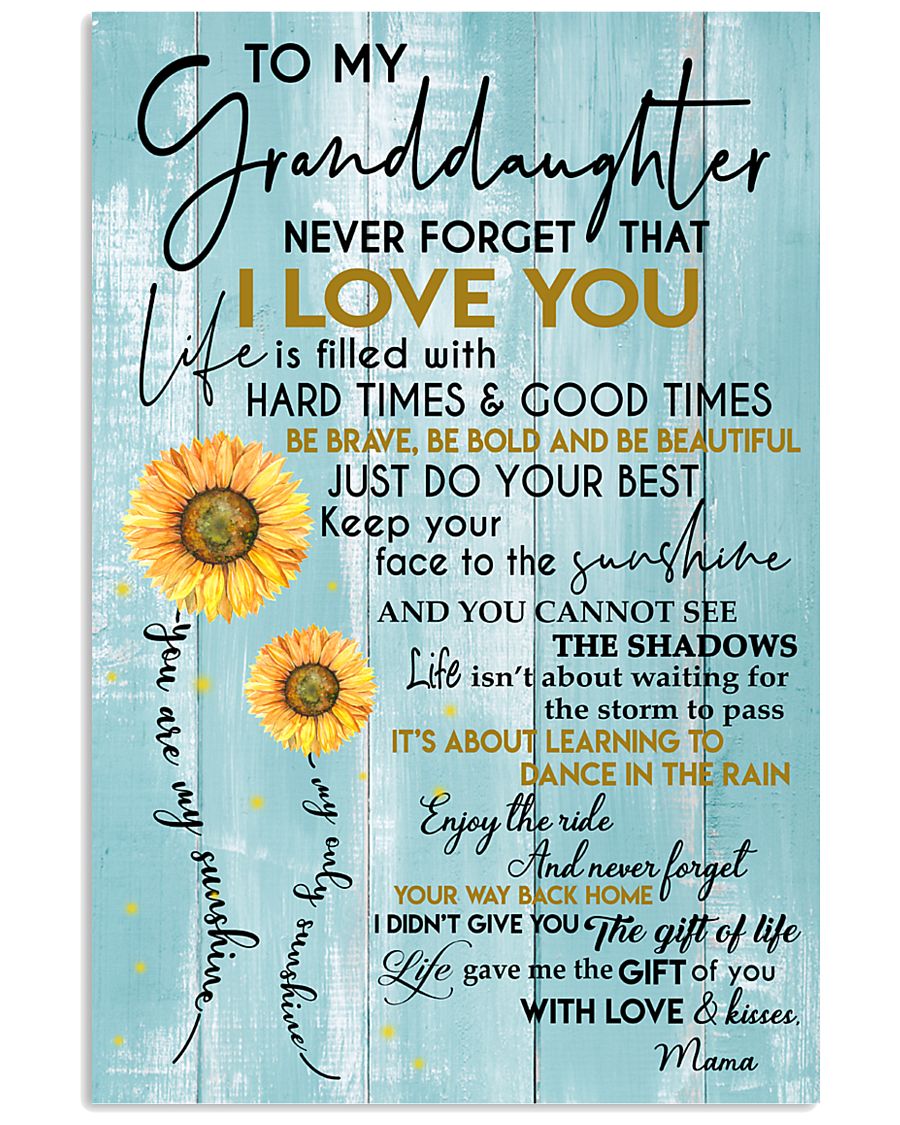 TO MY
Granddaughter
NEVER FORGET THAT
I LOVE YOU
Life is filled with
HARD TIMES & GOOD TIMES
BE BRAVE, BE BOLD AND BE BEAUTIFUL
JUST DO YOUR BEST
Keep your
face to the sunshine
AND YOU CANNOT SEE
THE SHADOWS
Life isn't about waiting for
the storm to pass
IT'S ABOUT LEARNING TO
DANCE IN THE RAIN
Enjoy the ride
And never forget
YOUR WAY BACK HOME
I DIDN'T GIVE YOU The gift of life
Life gave me the GIFT of you
WITH LOVE & kisses,
Mama
you are my sunshine
my only sunshine